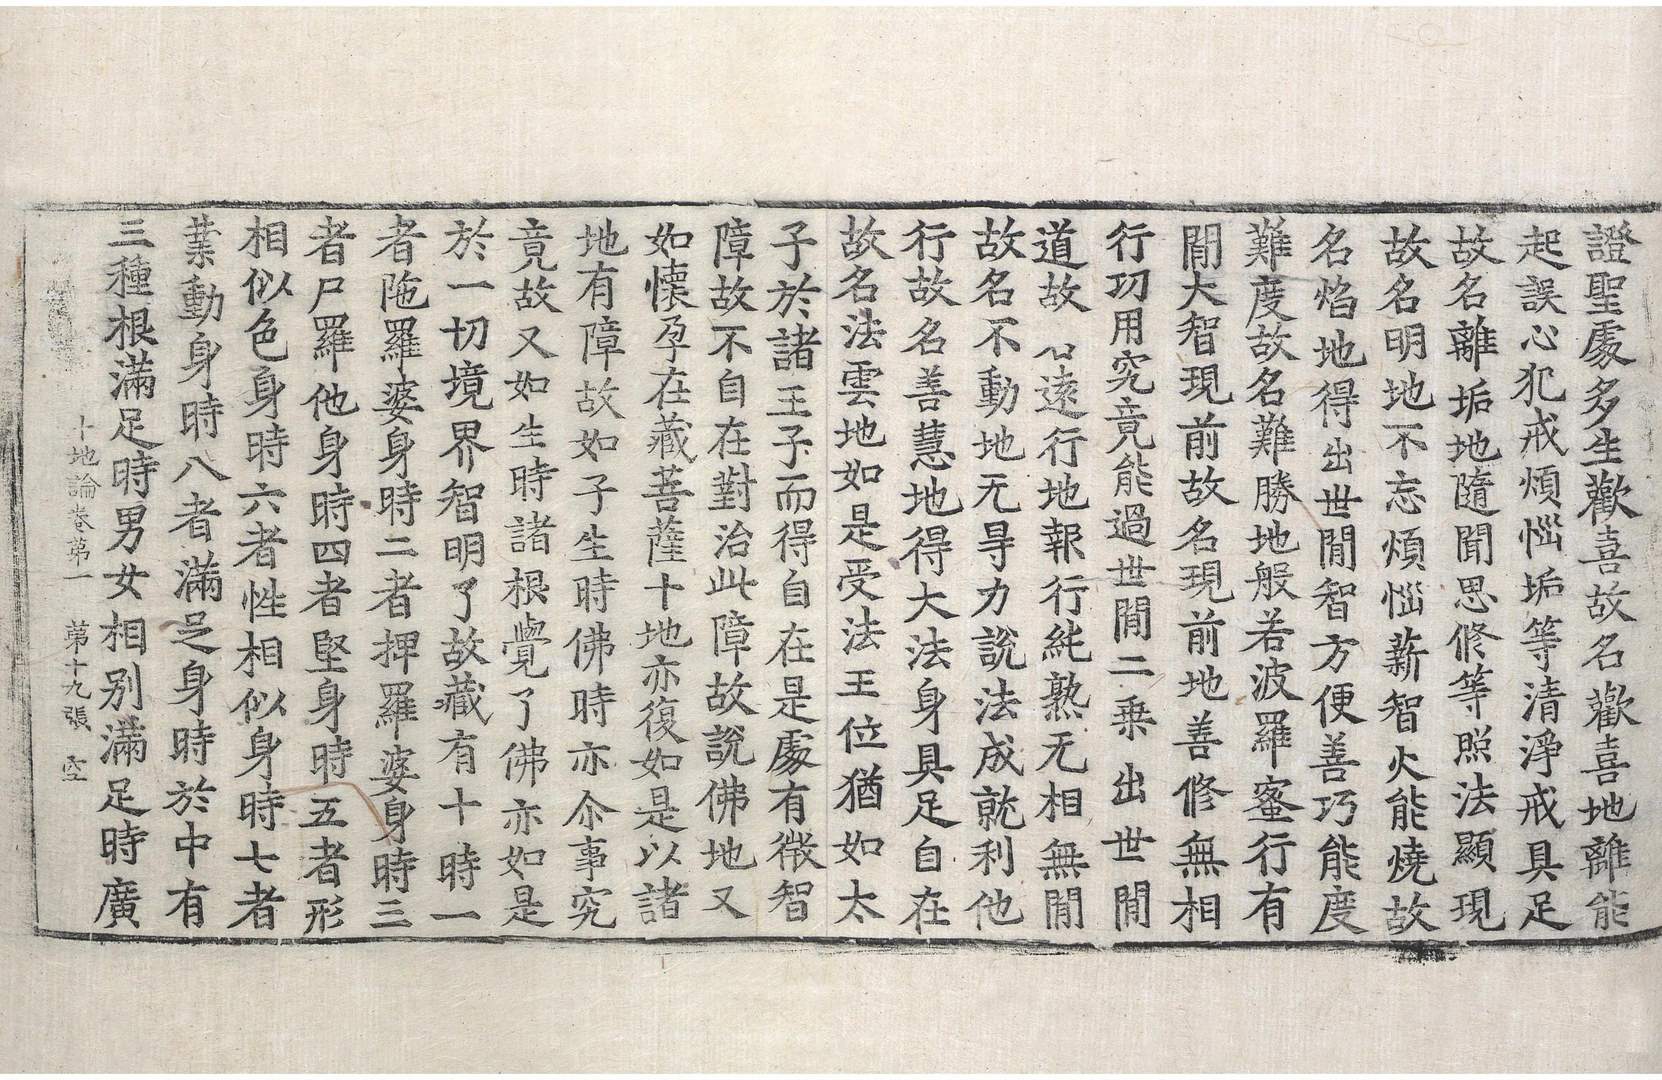 證聖處多生歡喜故名歡喜地離能
起誤心犯戒煩惱垢等清淨戒具足
故名離垢地隨聞思修等照法顯現
故名明地不忘煩惱薪智火能燒故
名焰地得出世閒智方便善巧能度
難度故名難勝地般若波羅蜜行有
閒大智現前故名現前地善修無相
行功用究竟能過世閒二乘出世閒
道故名遠行地報行純熟无相無閒
故名不動地无㝵力說法成就利他
行故名善慧地得大法身具足自在
故名法雲地如是受法王位猶如太
子於諸王子而得自在是處有微智
障故不自在對治此障故說佛地又
如懷孕在藏菩薩十地亦復如是以諸
地有障故如子生時佛時亦尒事究
竟故又如生時諸根覺了佛亦如是
於一切境界智明了故藏有十時一
者陁羅婆身時二者捭羅婆身時三
者尸羅他身時四者堅身時五者形
相似色身時六者性相似身時七者
業動身時八者滿足身時於中有
三種根滿足時男女相別滿足時廣
十地論卷第一 第十九張 空